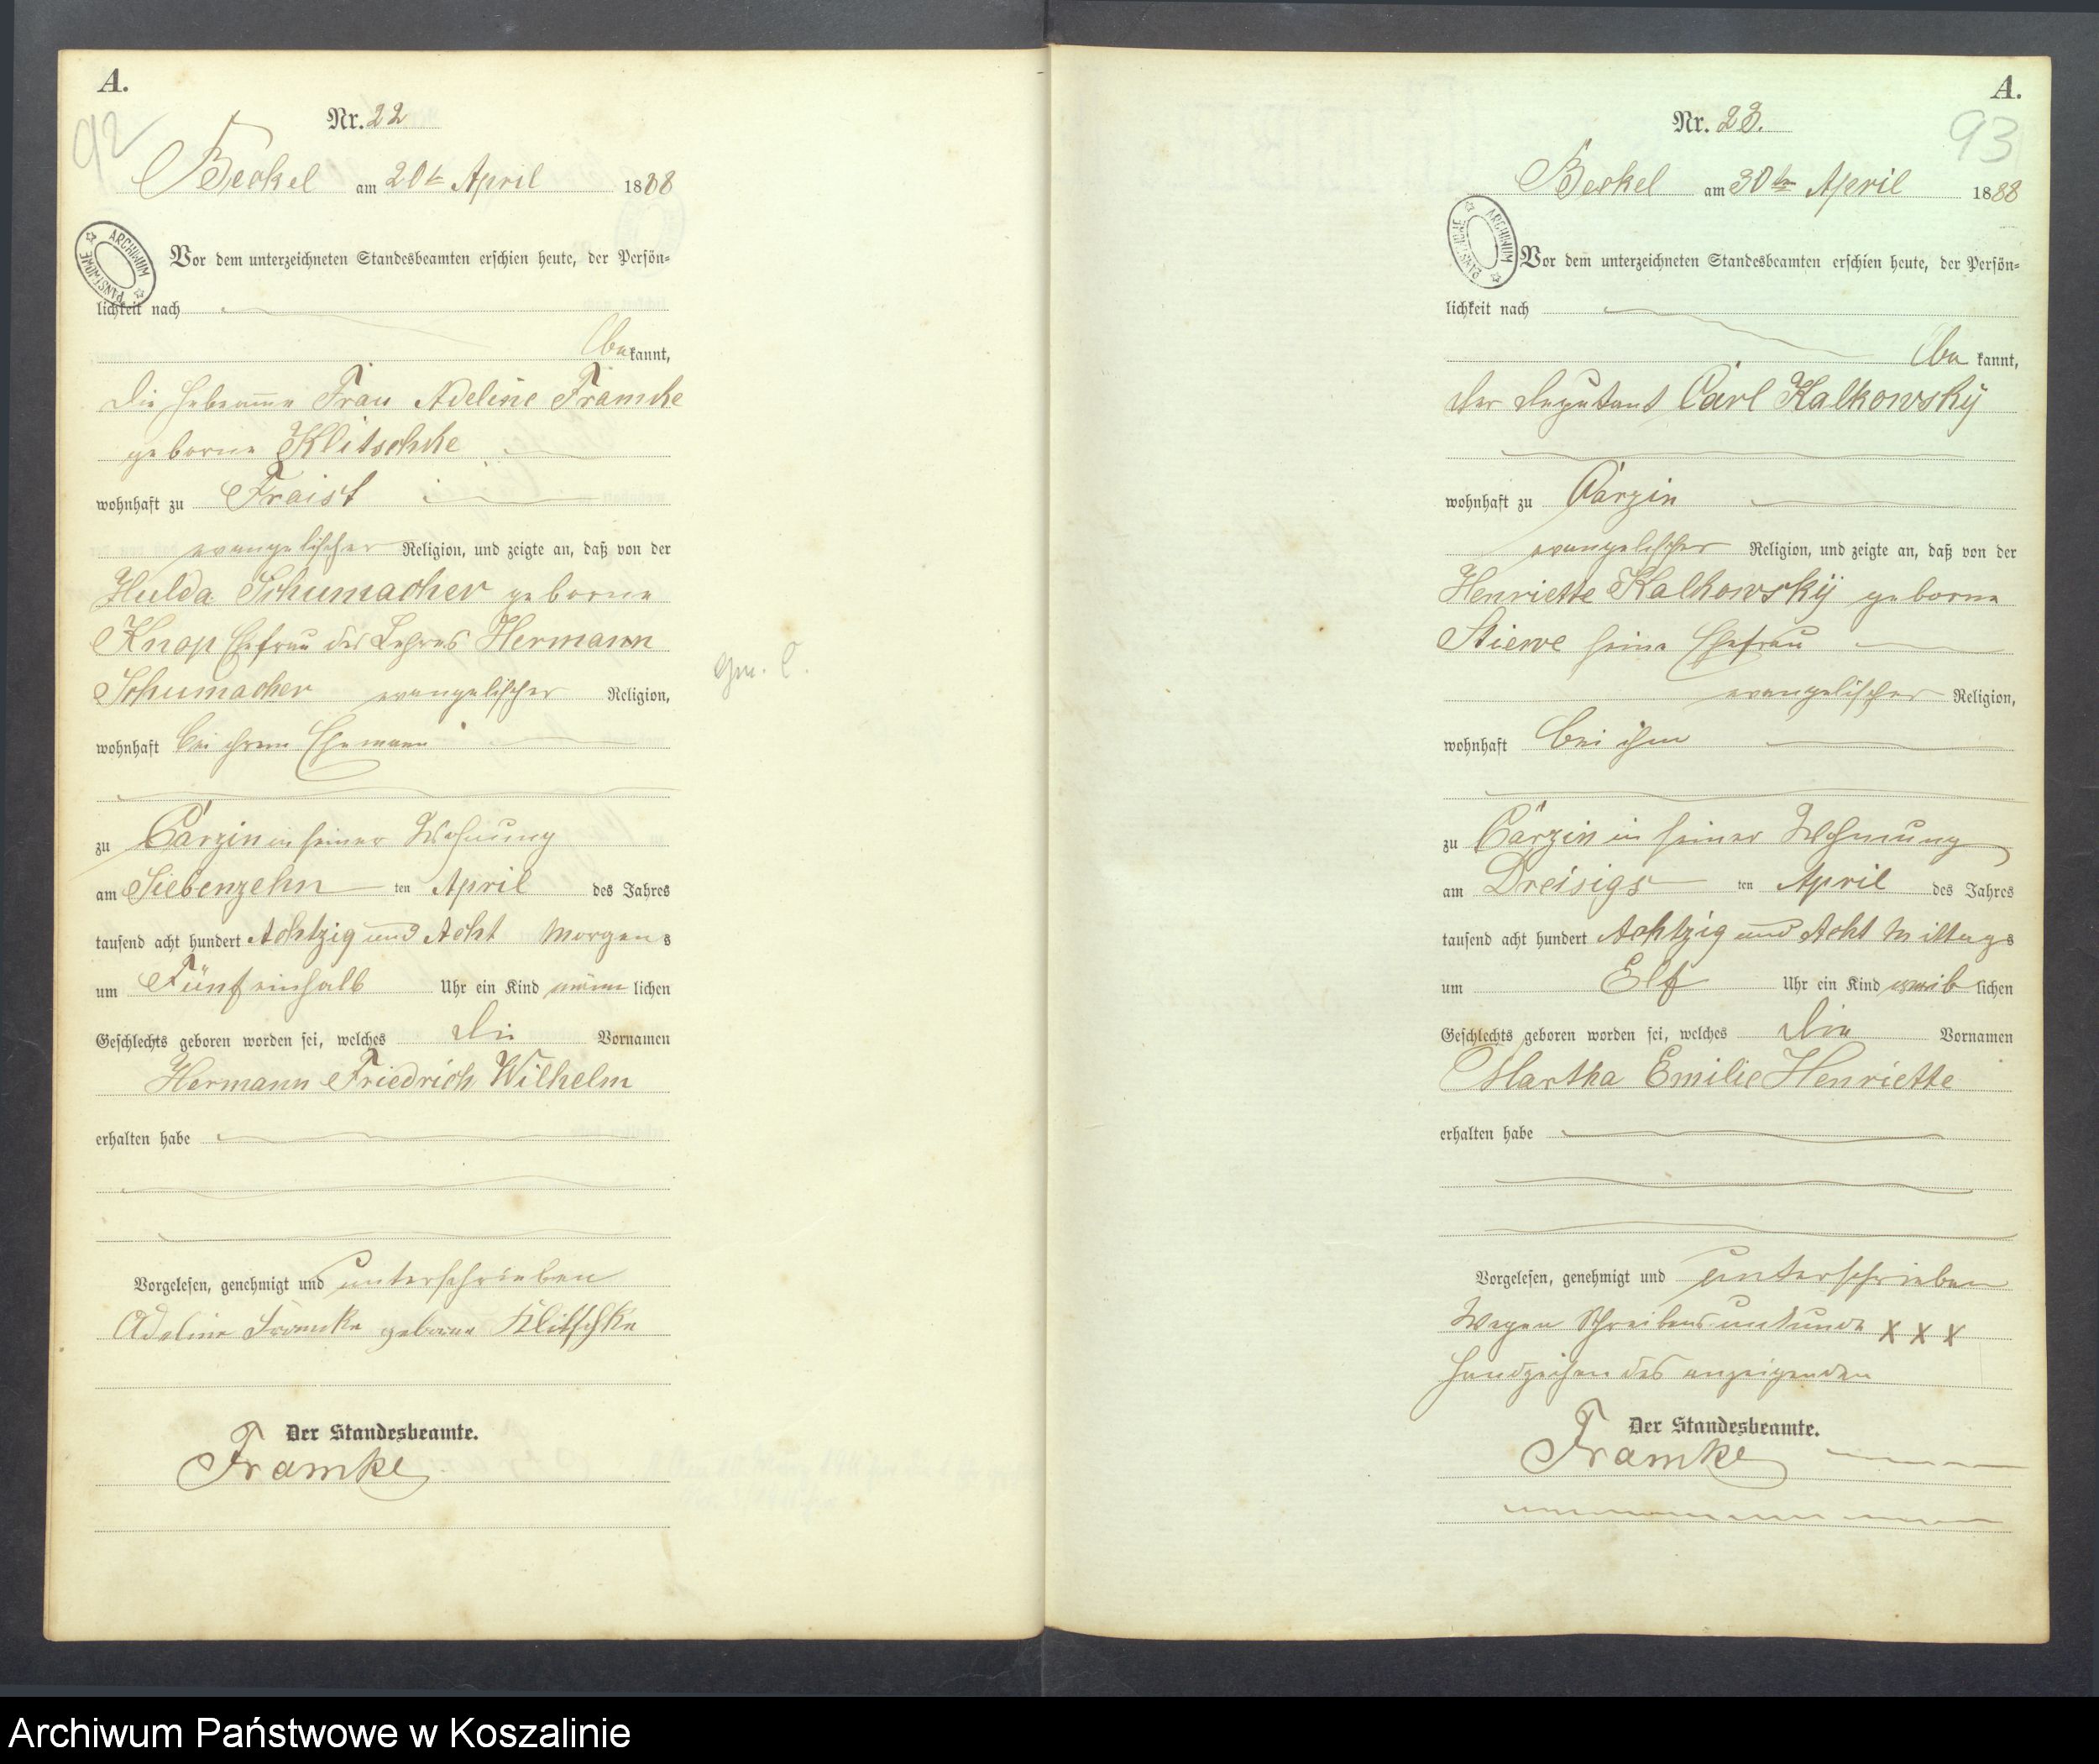 A.
92
Nr. 22
Beckel am 20t April 1888
ARCHIWUM PAŃSTWOWE
Vor dem unterzeichneten Standesbeamten erschien heute, der Persön-
lichkeit nach
bekannt,
die Hebamme Frau Adeline Framcke
geborne Klitschke
wohnhaft zu Fraist
evangelischer Religion, und zeigte an, daß von der
Hulda Schumacher geborne
Knop Ehefrau des Lehrers Hermann
Schumacher evangelischer Religion,
wohnhaft bei ihrem Ehemann
zu Carzin in seiner Wohnung
am Siebenzehn ten April des Jahres
tausend acht hundert Achtzig und Acht Morgens
um Fünfeinhalb Uhr ein Kind männlichen
Geschlechts geboren worden sei, welches die Vornamen
Hermann Friedrich Wilhelm
erhalten habe
Vorgelesen, genehmigt und unterschrieben
Adeline Framcke geborne Klitschke
Der Standesbeamte.
Framke
A.
93
Nr. 23.
Beckel am 30ten April 1888
ARCHIWUM PAŃSTWOWE
Vor dem unterzeichneten Standesbeamten erschien heute, der Persön-
lichkeit nach
bekannt,
der Deputant Carl Kalkowsky
wohnhaft zu Carzin
evangelischer Religion, und zeigte an, daß von der
Henriette Kalkowsky geborne
Stiewe seine Ehefrau
evangelischer Religion,
wohnhaft bei ihm
zu Carzin in seiner Wohnung
am Dreisigs ten April des Jahres
tausend acht hundert Achtzig und Acht Mittags
um Elf Uhr ein Kind weiblichen
Geschlechts geboren worden sei, welches die Vornamen
Martha Emilie Henriette
erhalten habe
Vorgelesen, genehmigt und unterschrieben
Wegen Schreibensunkunde X X X
Handzeichen des anzeigenden
Der Standesbeamte.
Framke
Archiwum Państwowe w Koszalinie